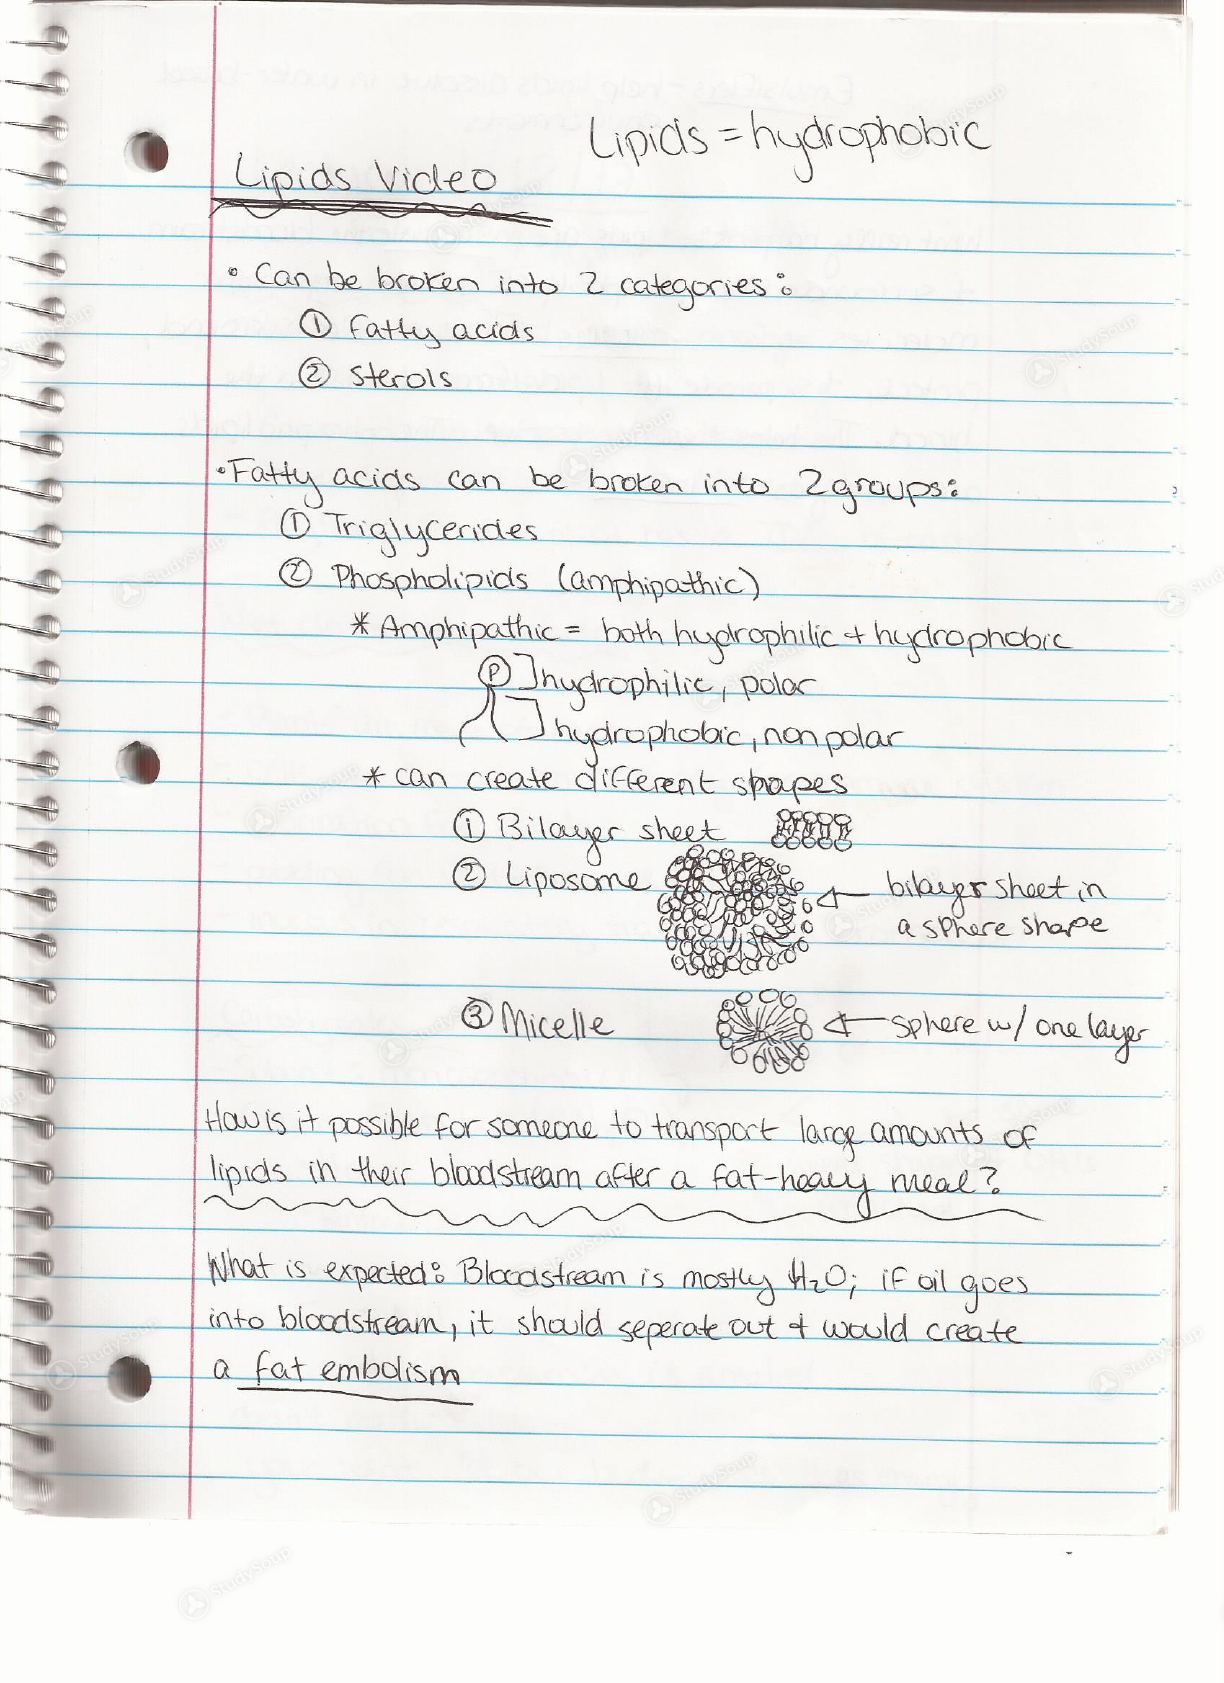 Lipids = hydrophobic
Lipids Video
• Can be broken into 2 categories:
① Fatty acids
② Sterols
• Fatty acids can be broken into 2 groups:
① Triglycerides
② Phospholipids (amphipathic)
* Amphipathic = both hydrophilic + hydrophobic
P ] hydrophilic, polar
] hydrophobic, nonpolar
* can create different shapes
① Bilayer sheet
② Liposome ← bilayer sheet in
a sphere shape
③ Micelle ← sphere w/ one layer
How is it possible for someone to transport large amounts of
lipids in their bloodstream after a fat-heavy meal?
What is expected: Bloodstream is mostly H₂O; if oil goes
into bloodstream, it should seperate out + would create
a fat embolism
StudySoup